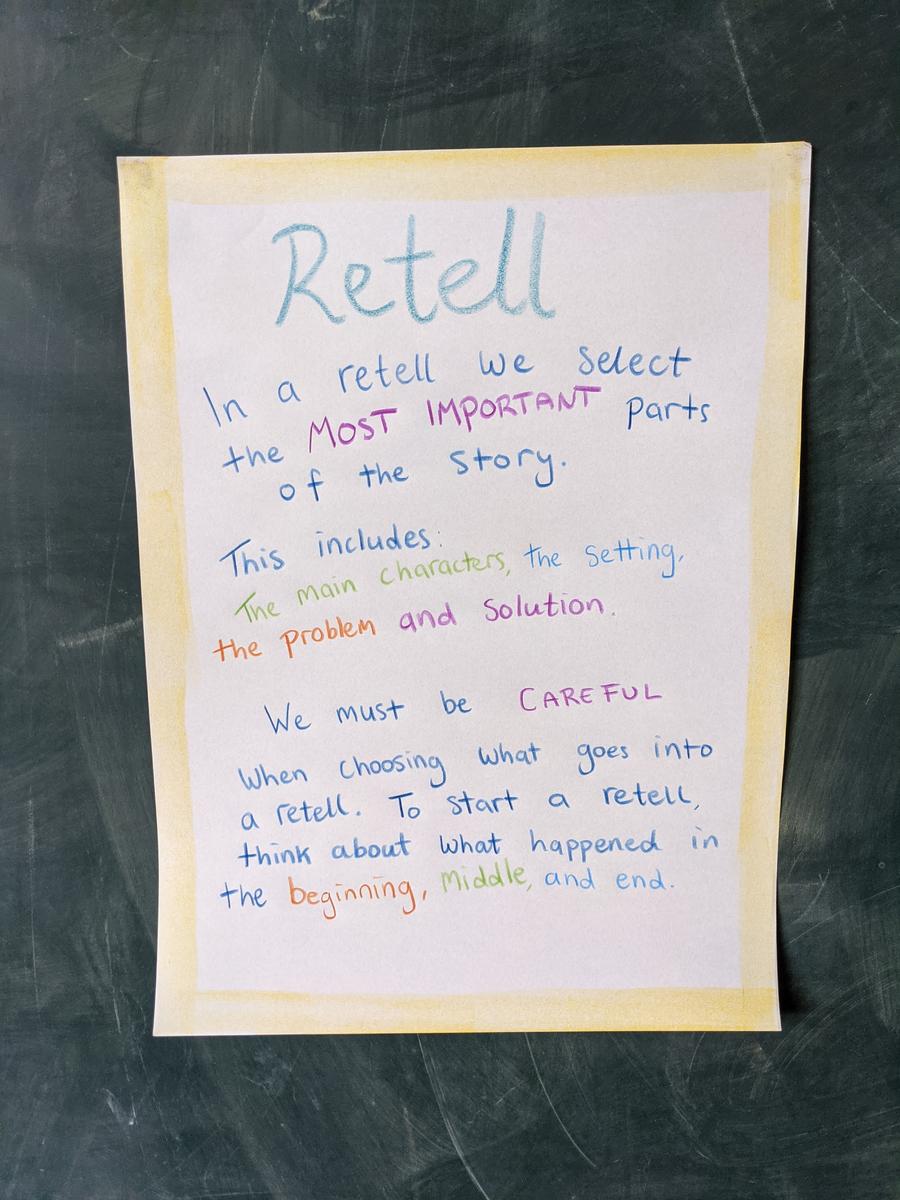 Retell
In a retell we select
the MOST IMPORTANT parts
of the story.
This includes:
The main characters, the setting,
the problem and solution.
We must be CAREFUL
When choosing what goes into
a retell. To start a retell,
think about what happened in
the beginning, middle, and end.